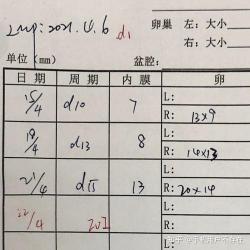 Lmp: 2021.4.6 d1
卵巢 左：大小
右：大小
单位（mm） 盆腔：
日期 周期 内膜 卵
15/4 d10 7 L:
R: 13x9
19/4 d13 8 L:
R: 14x13
21/4 d15 13 L:
R: 20x14
22/4 L:
R:
知乎